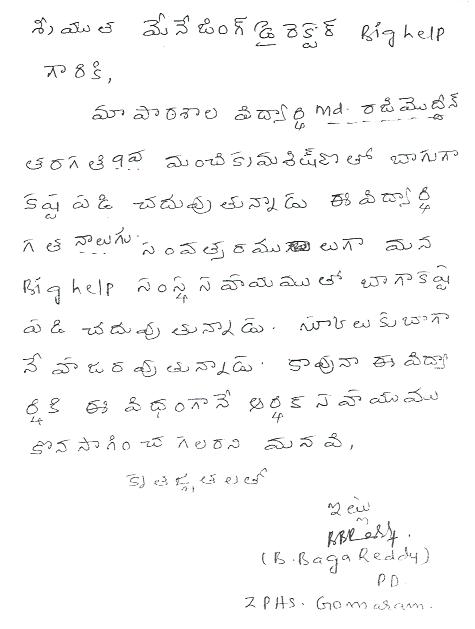 శ్రీయుత మేనేజింగ్ డైరెక్టర్ Big help
గారికి,
మా పాఠశాల విద్యార్థి Md. రజిమొద్దీన్
తరగతి 9వ మంచి క్రమశిక్షణతో బాగుగా
కష్టపడి చదువుతున్నాడు ఈ విద్యార్థి
గత నాలుగు సంవత్సరము లుగా మన
Big help సంస్థ సహాయముతో బాగా కష్ట
పడి చదువుతున్నాడు. స్కూలుకు బాగా
నే హాజరవుతున్నాడు. కావునా ఈ విద్యా
ర్థికి ఈ విధంగానే ఆర్థిక సహాయము
కొనసాగించగలరని మనవి,
కృతజ్ఞతలతో
ఇట్లు
BBReddy.
(B. Baga Reddy)
PD.
ZPHS. Gomaram.